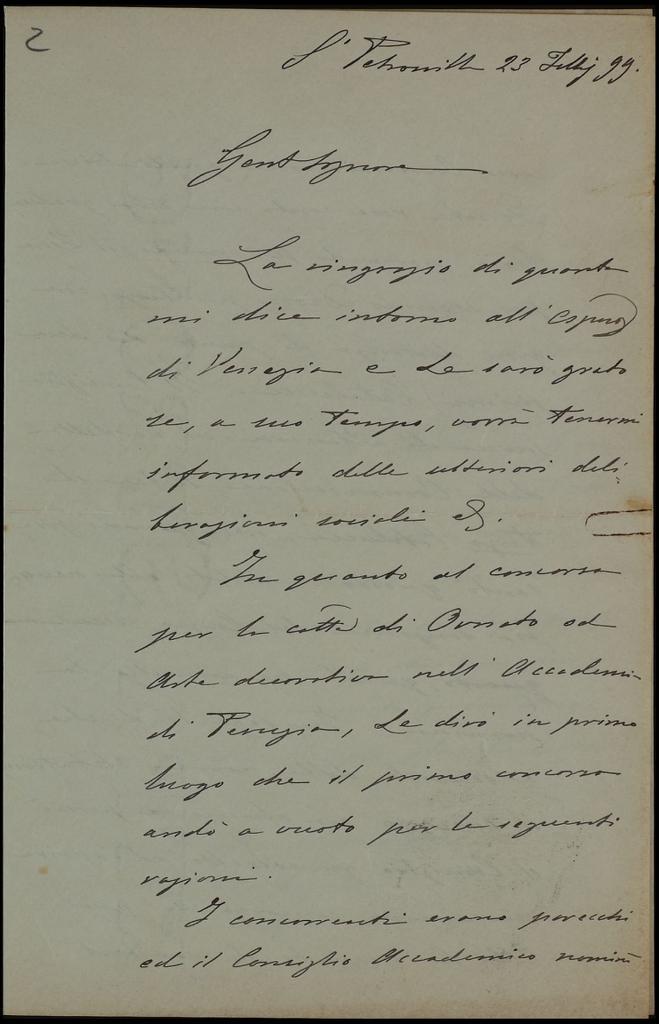 2
S. Petronill 23 Febbj 99.
Gent Signore
La ringrazio di quanto
mi dice intorno all' Esposiz
di Venezia e Le sarò grato
se, a suo tempo, vorrà tenermi
informato delle ulteriori deli
berazioni sociali
In quanto al concorso
per la catta di Ornato ed
Arte decorativa nell' Accademi-
di Perugia, Le dirò in primo
luogo che il primo concorso
andò a vuoto per le seguenti
ragioni.
I concorrenti erano parecchi
ed il Consiglio Accademico nominò